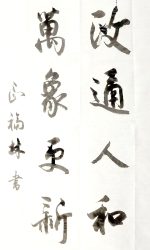 政通人和
萬象更新
正福林書